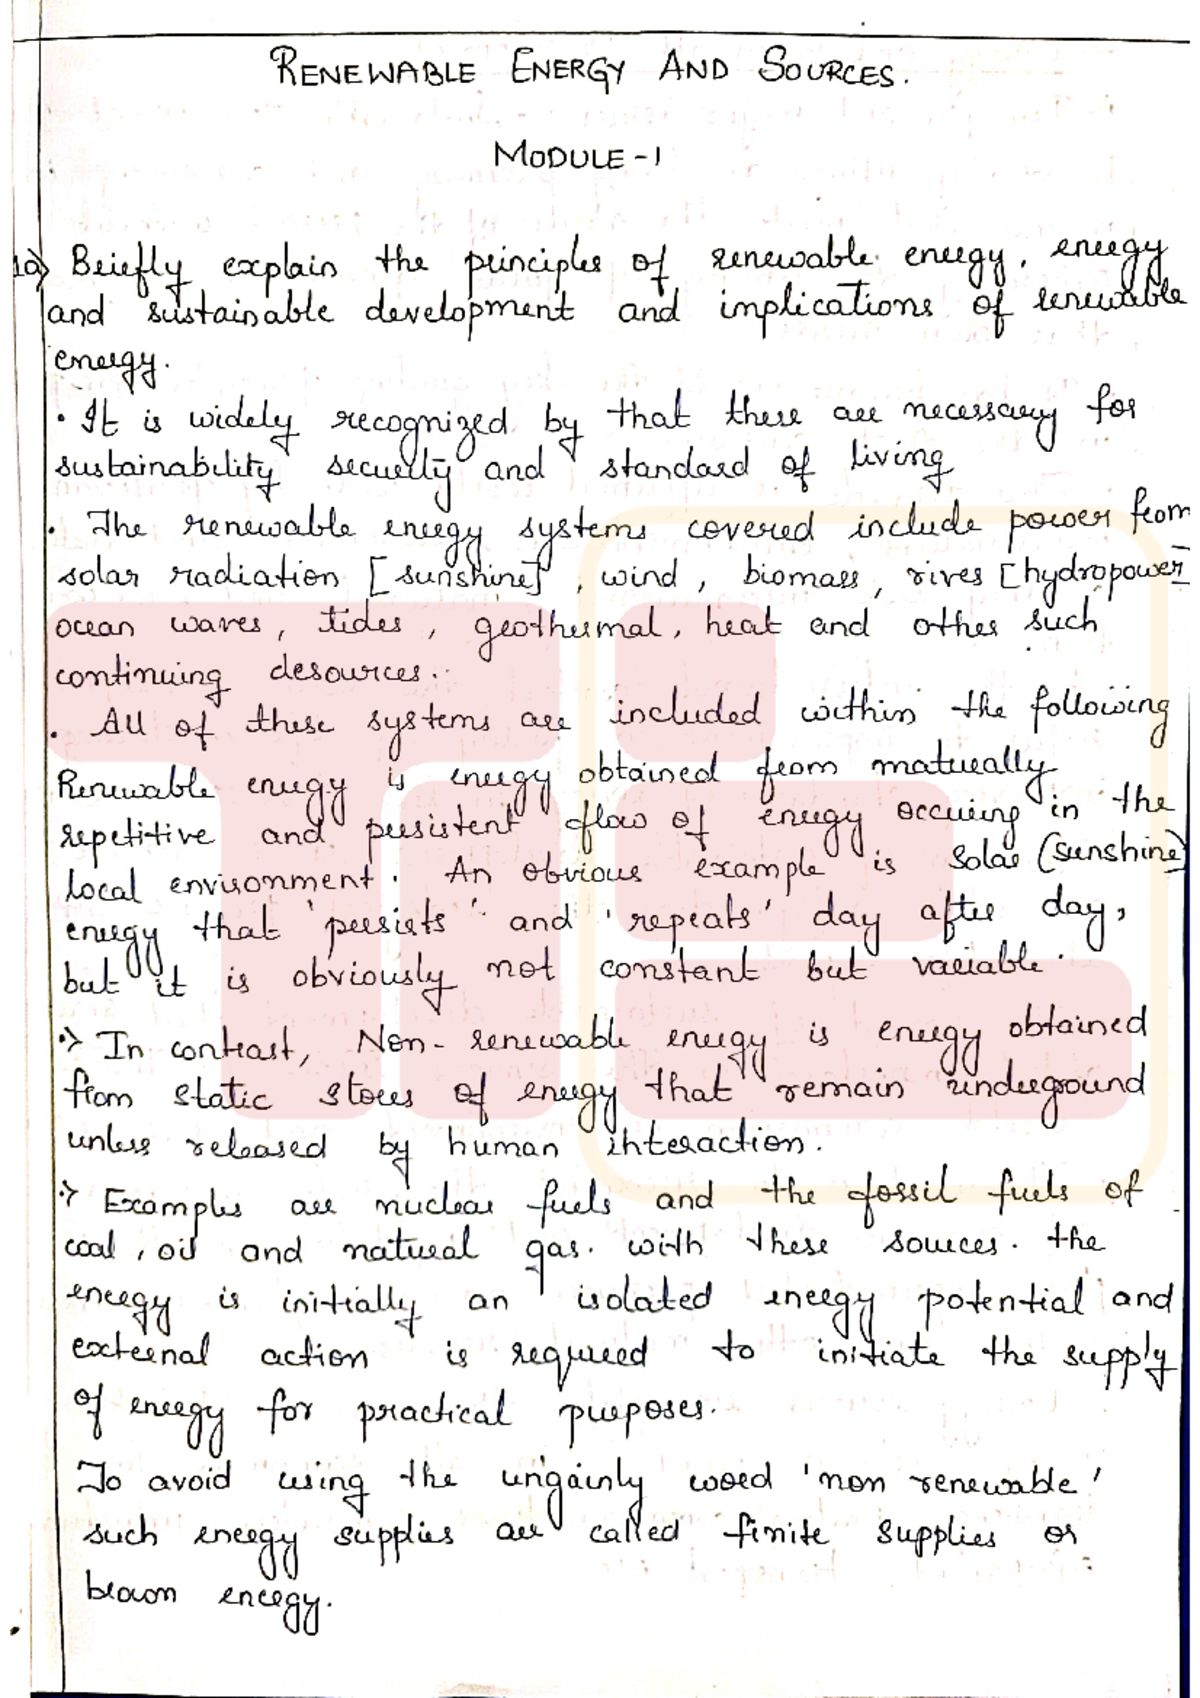 RENEWABLE ENERGY AND SOURCES.
MODULE-1
1a) Briefly explain the principles of renewable energy, energy
and sustainable development and implications of renewable
energy.
• It is widely recognized by that these are necessary for
sustainability security and standard of living
• The renewable energy systems covered include power from
solar radiation [sunshine], wind, biomass, rives [hydropower]
ocean waves, tides, geothermal, heat and other such
continuing desources.
• All of these systems are included within the following
Renewable energy is energy obtained from matueally
repetitive and persistent flow of energy occuring in the
local environment. An obvious example is solar (sunshine)
energy that 'persists' and 'repeats' day after day,
but it is obviously not constant but variable.
•> In contrast, Non-renewable energy is energy obtained
from static stores of energy that remain underground
unless released by human interaction.
•> Examples are nuclear fuels and the fossil fuels of
coal, oil and natural gas. with these sources. the
energy is initially an isolated energy potential and
external action is required to initiate the supply
of energy for practical purposes.
To avoid using the ungainly word 'non renewable'
such energy supplies are called finite supplies or
brown energy.